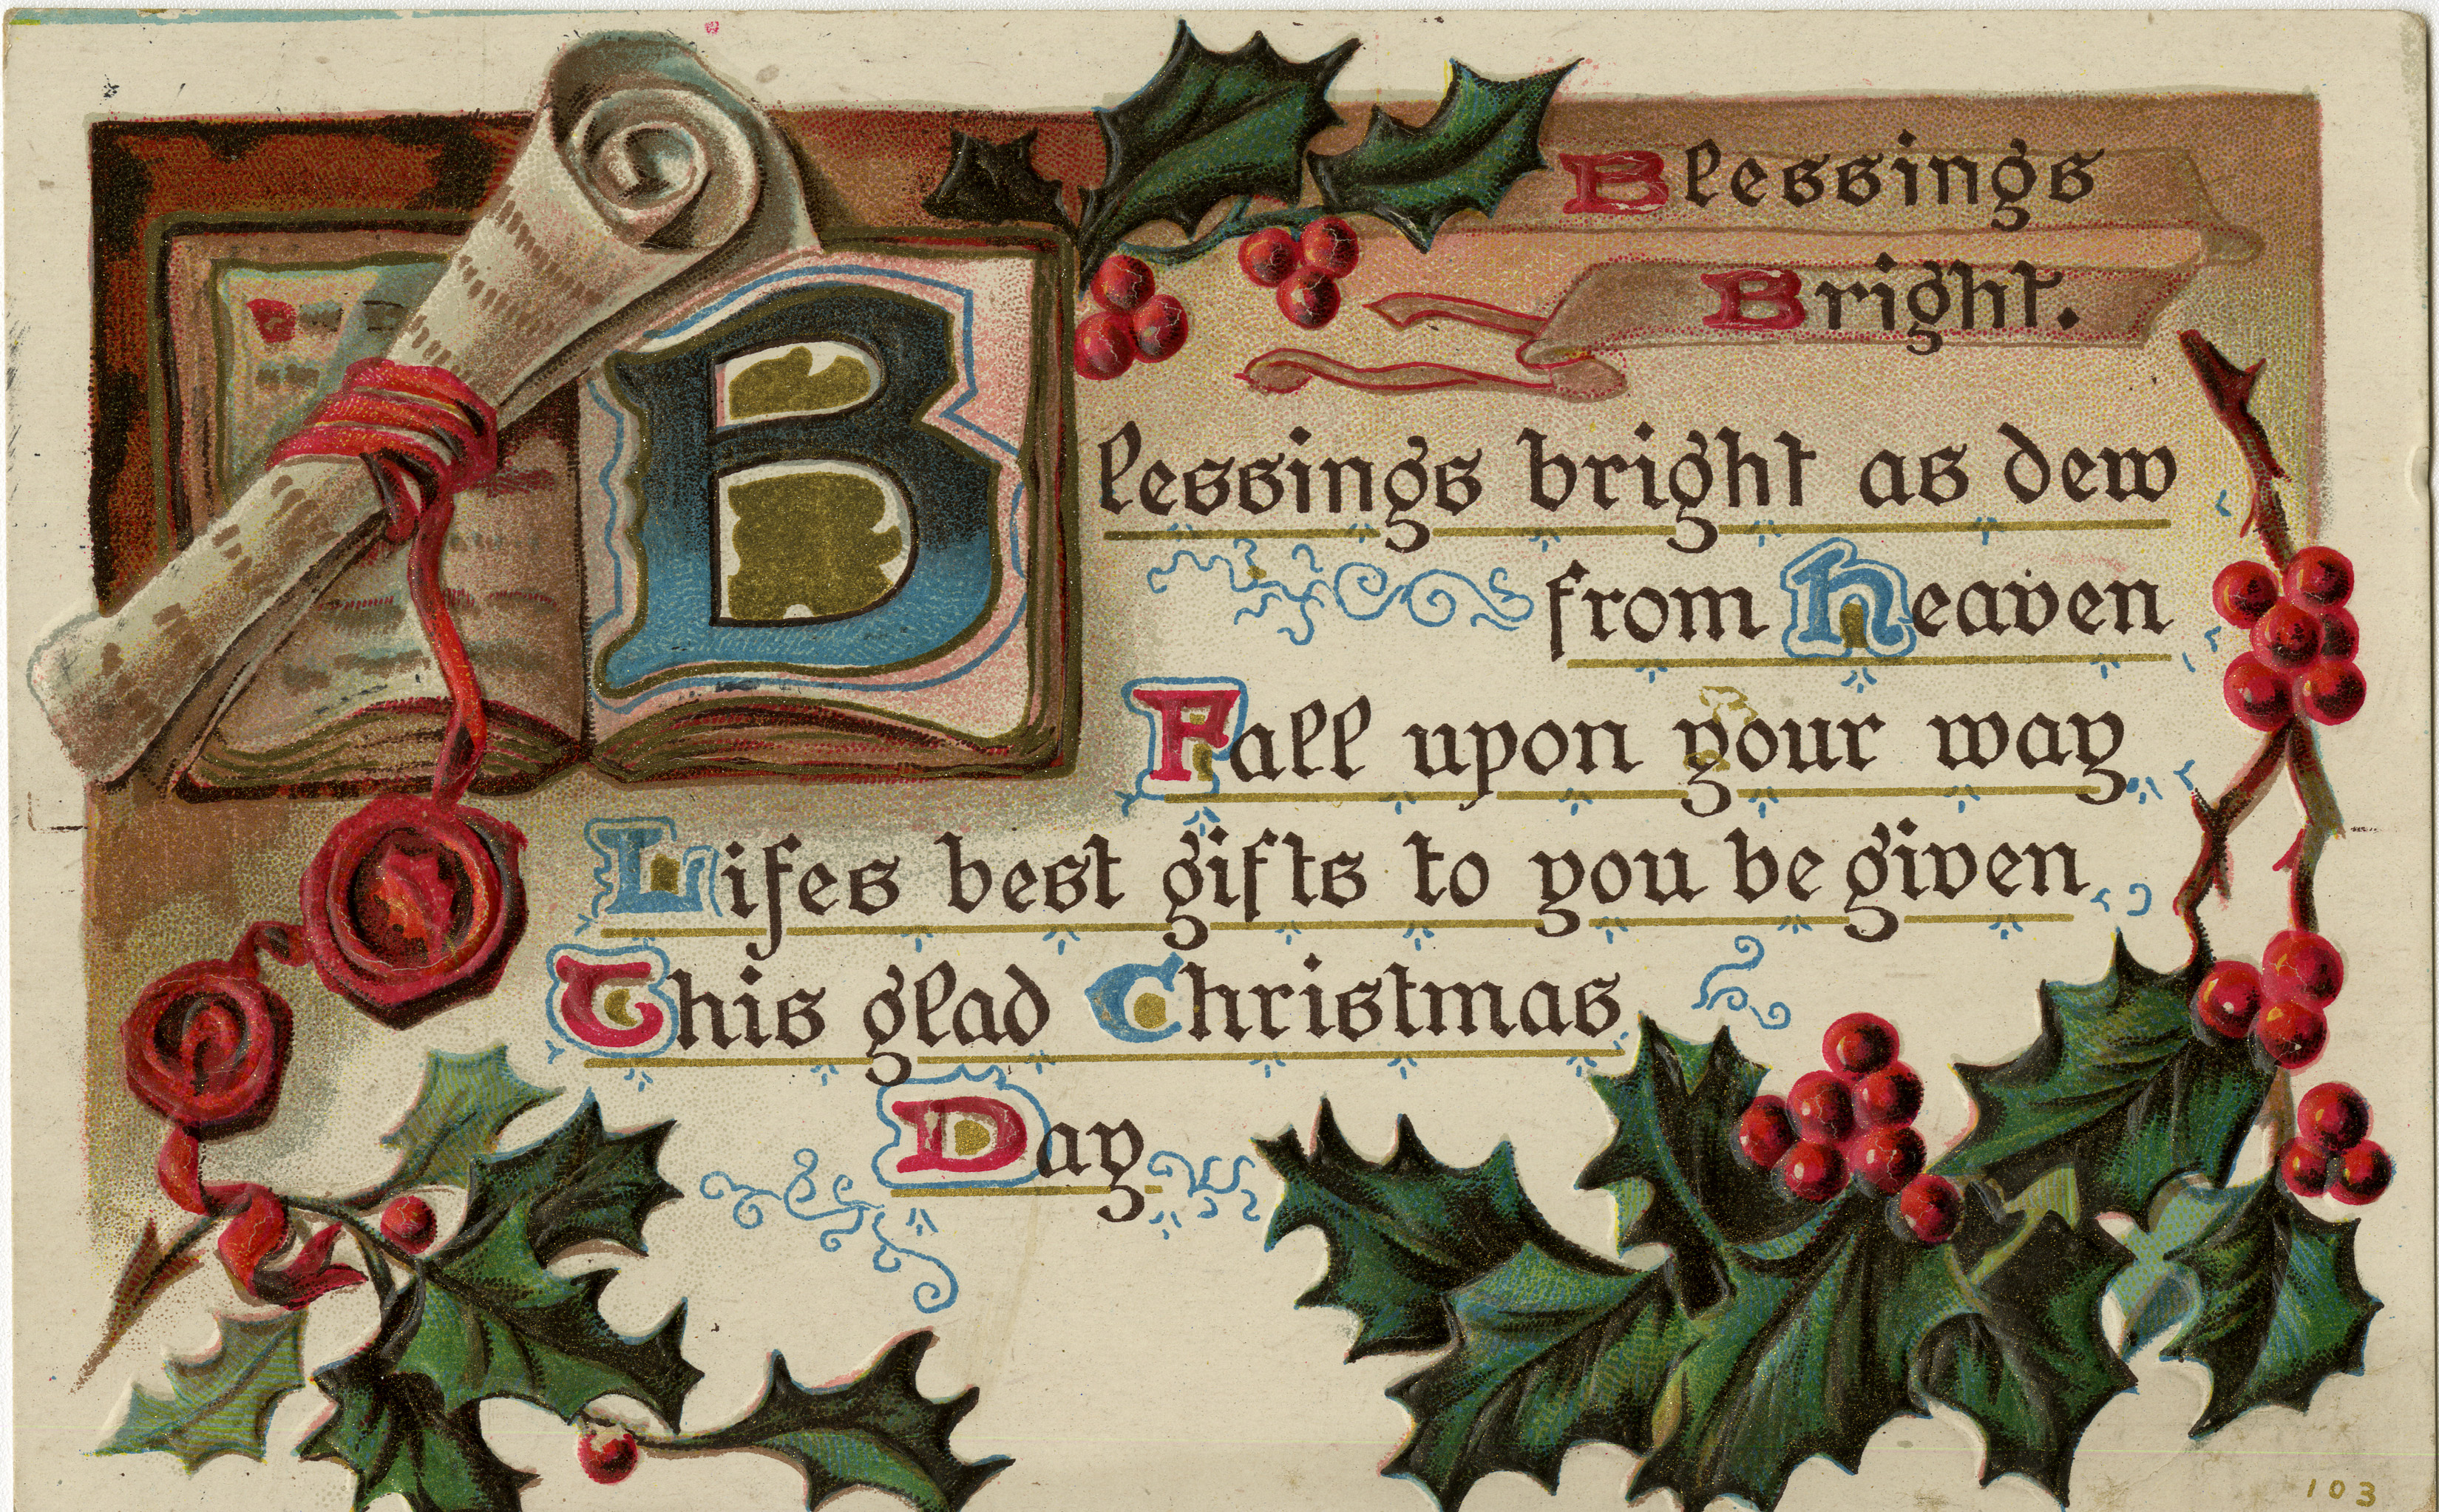 Blessings
Bright.
Blessings bright as dew
from Heaven
Fall upon your way
Lifes best gifts to you be given
This glad Christmas
Day
103